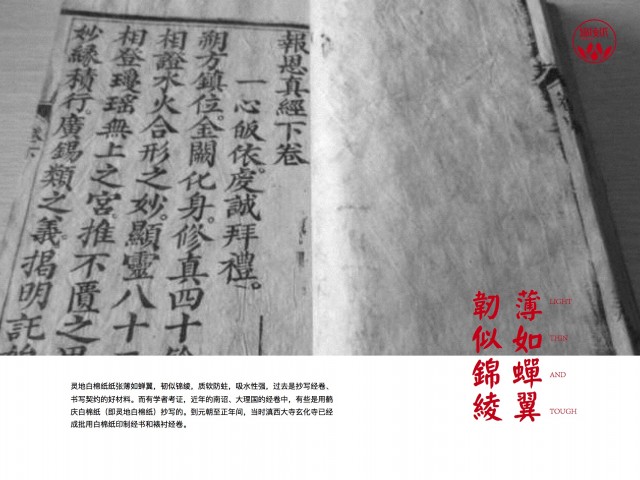 報恩真經下卷
一心皈依虔誠拜禮。
朔方鎮位。金闕化身。修真四十餘
相證水火合形之妙。顯靈八十一
相登瓊瑤無上之宮。推不匱之
妙緣積行。廣錫類之義。揭明託始
薄如蟬翼
韌似錦綾
LIGHT
THIN
AND
TOUGH
灵地白棉纸纸张薄如蝉翼，韧似锦绫，质软防蛀，吸水性强，过去是抄写经卷、
书写契约的好材料。而有学者考证，近年的南诏、大理国的经卷中，有些是用鹤
庆白棉纸（即灵地白棉纸）抄写的。到元朝至正年间，当时滇西大寺玄化寺已经
成批用白棉纸印制经书和裱衬经卷。